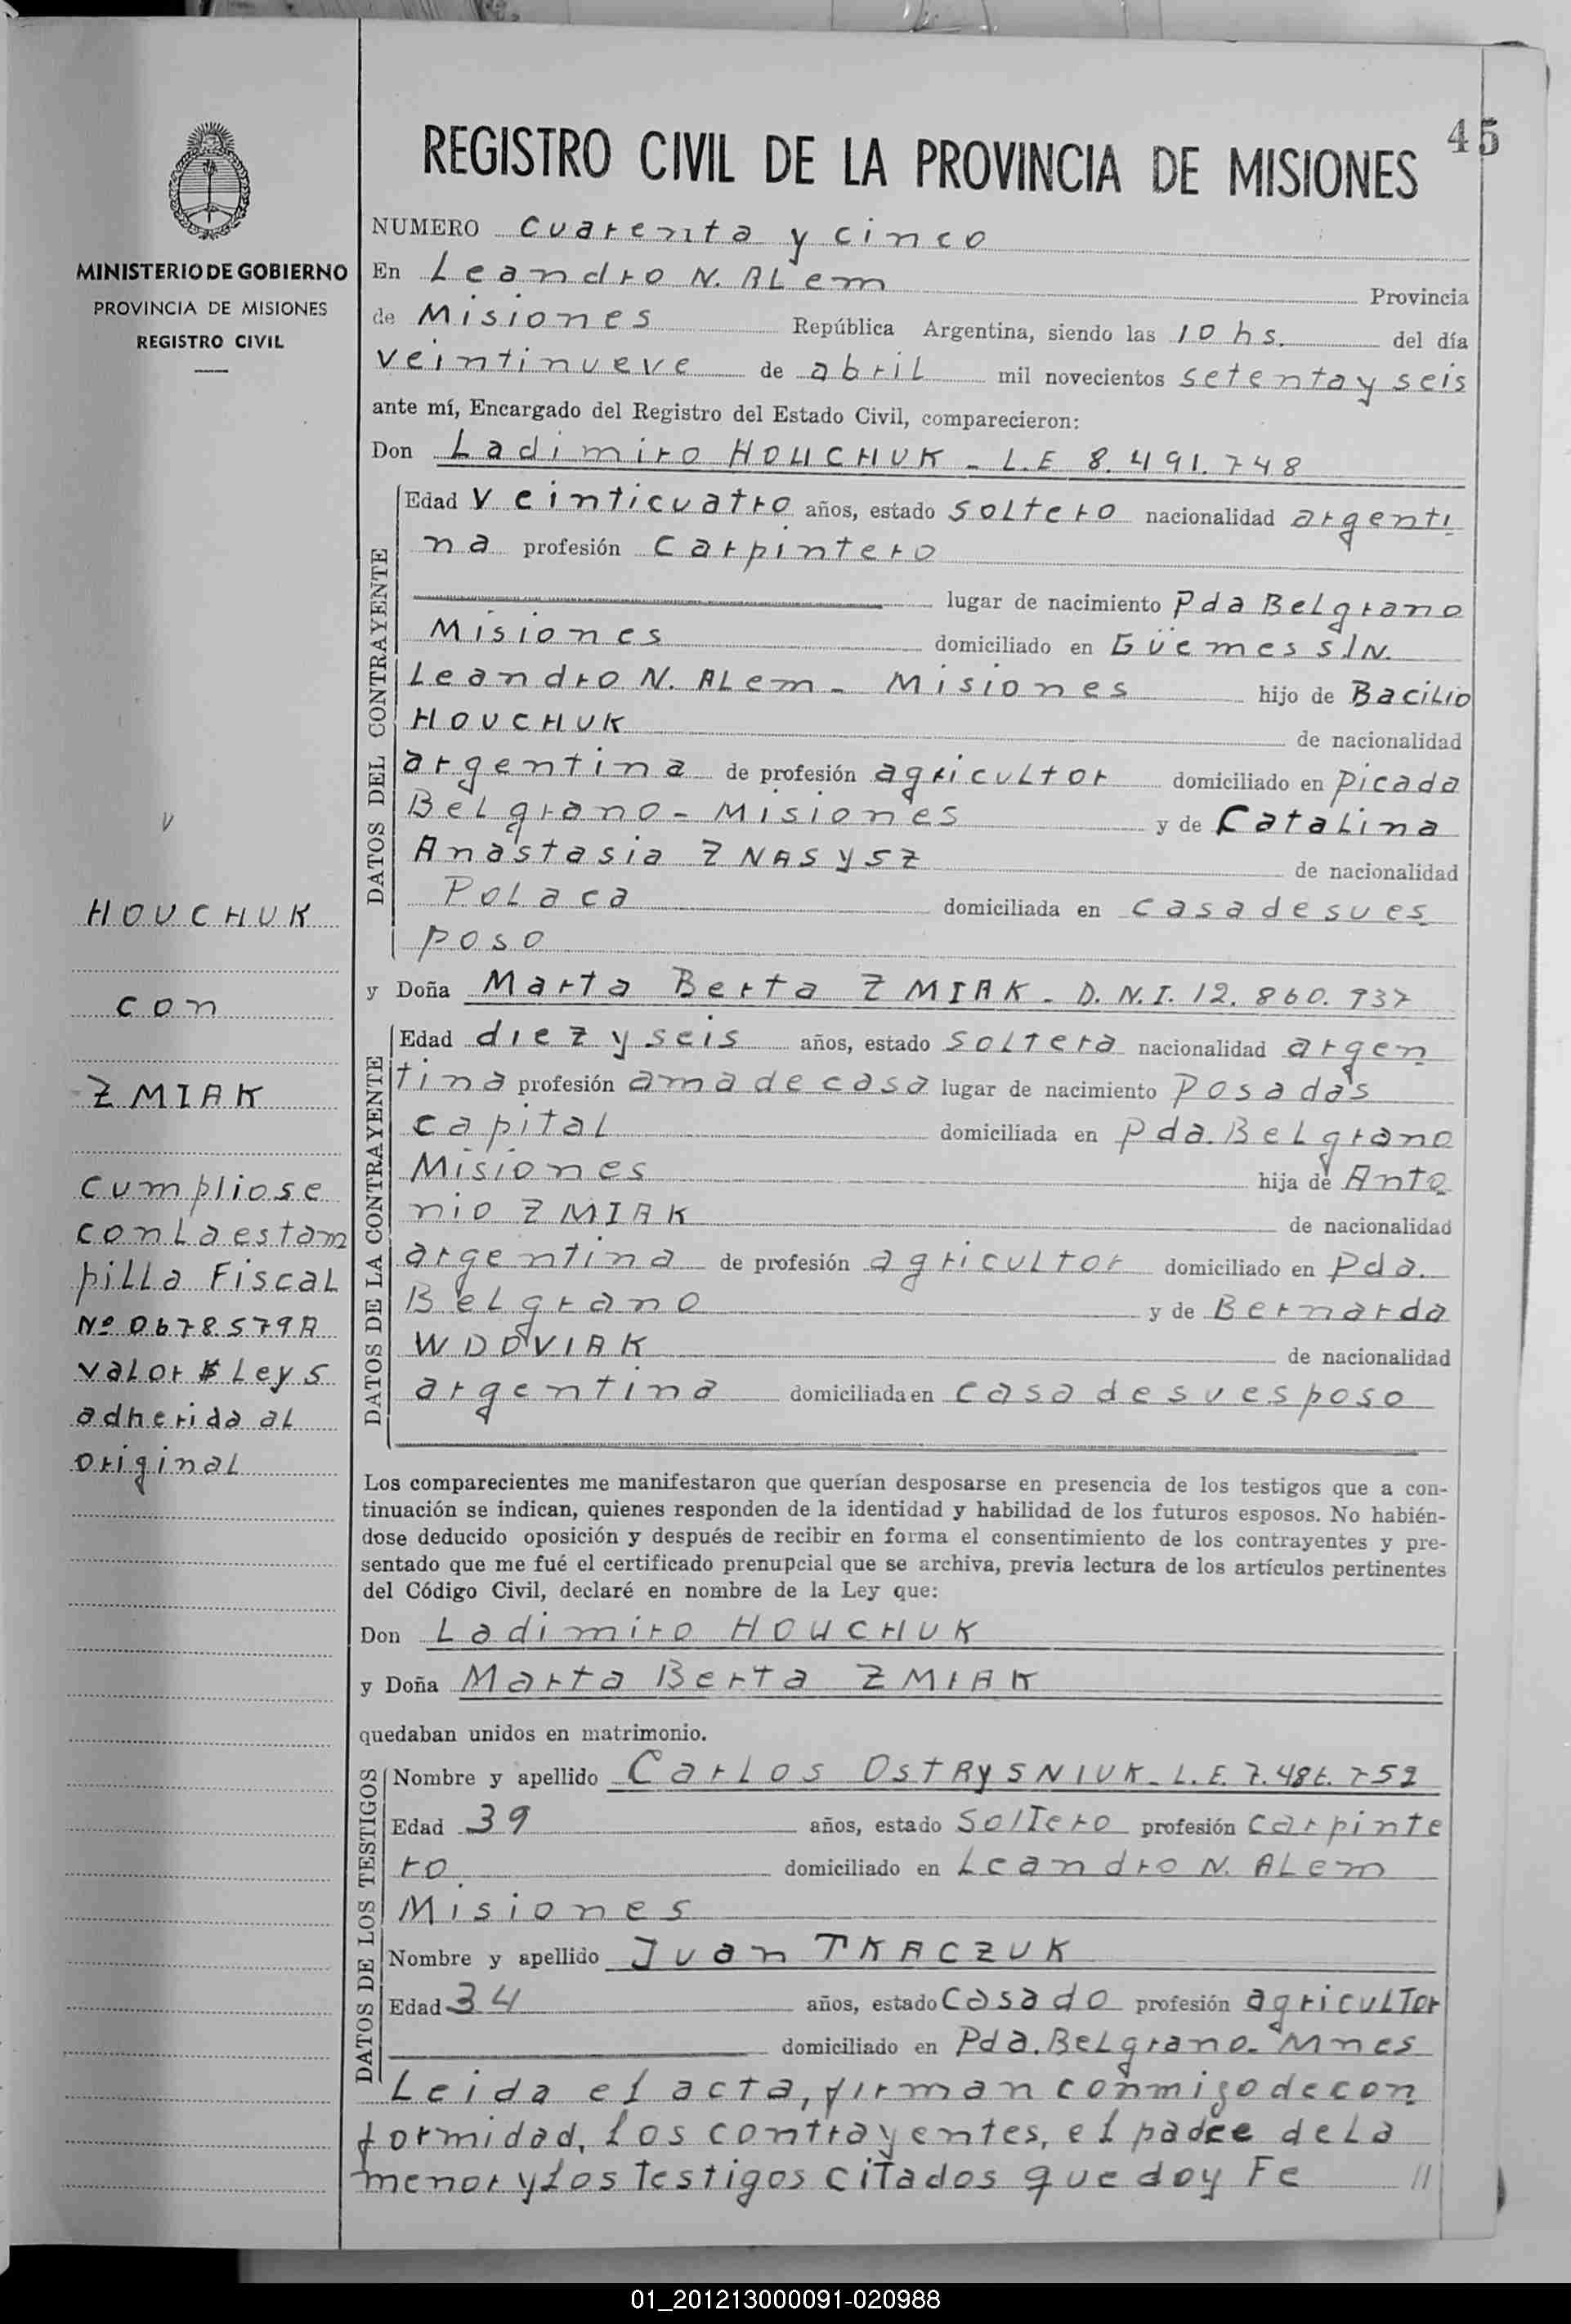 45
REGISTRO CIVIL DE LA PROVINCIA DE MISIONES
MINISTERIO DE GOBIERNO
PROVINCIA DE MISIONES
REGISTRO CIVIL
HOUCHUK
con
ZMIAK
cumpliose
con La estam
pilla Fiscal
Nº 0678579A
valor $ Ley s
adherida al
original
NUMERO cuarenta y cinco
En Leandro N. ALem Provincia
de Misiones República Argentina, siendo las 10 hs. del día
veintinueve de abril mil novecientos setenta y seis
ante mí, Encargado del Registro del Estado Civil, comparecieron:
Don Ladimiro HOUCHUK - L.E 8.491.748
DATOS DEL CONTRAYENTE
Edad veinticuatro años, estado soltero nacionalidad argenti
na profesión carpintero
lugar de nacimiento Pda Belgrano
Misiones domiciliado en Güemes S/N.
Leandro N. ALem - Misiones hijo de Bacilio
HOUCHUK de nacionalidad
argentina de profesión agricultor domiciliado en picada
Belgrano - Misiones y de Catalina
Anastasia ZNASYSZ de nacionalidad
Polaca domiciliada en casa de su es
poso
y Doña Marta Berta ZMIAK - D.N.I. 12.860.937
DATOS DE LA CONTRAYENTE
Edad diez y seis años, estado soltera nacionalidad argen
tina profesión ama de casa lugar de nacimiento Posadas
capital domiciliada en Pda. Belgrano
Misiones hija de Anto
nio ZMIAK de nacionalidad
argentina de profesión agricultor domiciliado en Pda.
Belgrano y de Bernarda
WDOVIAK de nacionalidad
argentina domiciliada en casa de su esposo
Los comparecientes me manifestaron que querían desposarse en presencia de los testigos que a con-
tinuación se indican, quienes responden de la identidad y habilidad de los futuros esposos. No habién-
dose deducido oposición y después de recibir en forma el consentimiento de los contrayentes y pre-
sentado que me fué el certificado prenupcial que se archiva, previa lectura de los artículos pertinentes
del Código Civil, declaré en nombre de la Ley que:
Don Ladimiro HOUCHUK
y Doña Marta Berta ZMIAK
quedaban unidos en matrimonio.
DATOS DE LOS TESTIGOS
Nombre y apellido Carlos OSTRYSNIUK - L.E.
Edad 39 años, estado soltero profesión carpinte
ro domiciliado en Leandro N. ALem
Misiones
Nombre y apellido Juan TKACZUK
Edad 34 años, estado casado profesión agricultor
domiciliado en Pda. Belgrano - Mnes
Leida el acta, firman conmigo de con
formidad, los contrayentes, el padre de La
menor y los testigos citados que doy Fe //
01_201213000091-020988